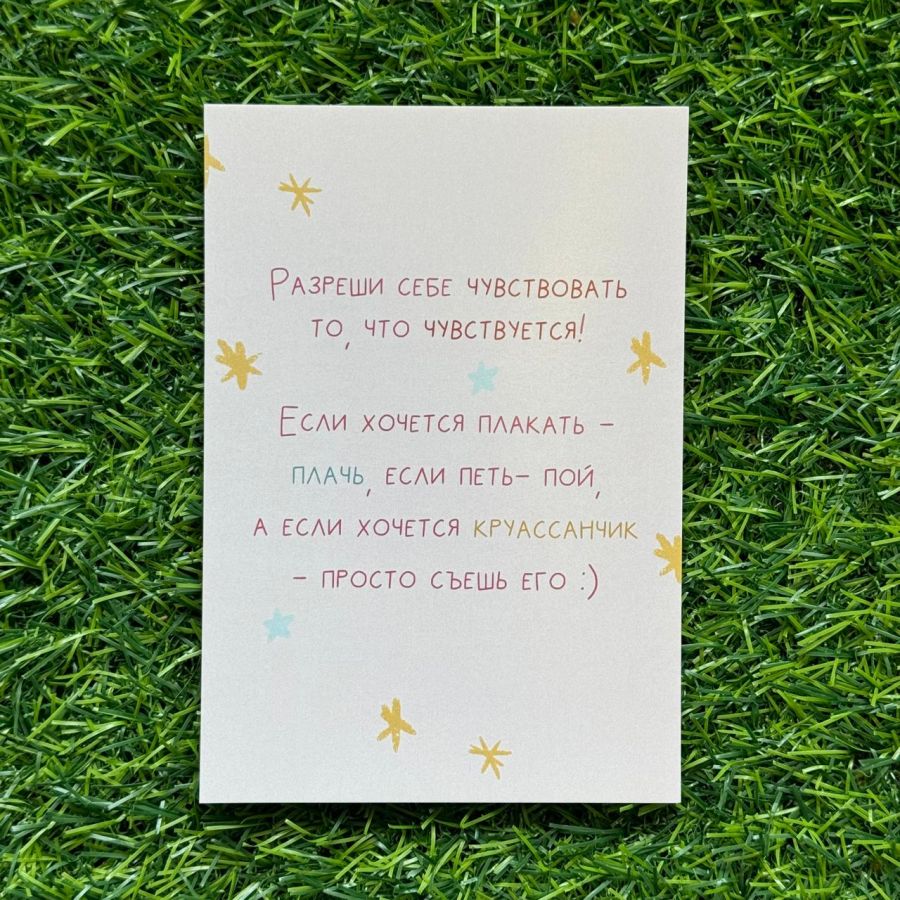 Разреши себе чувствовать
то, что чувствуется!
Если хочется плакать –
плачь, если петь– пой,
а если хочется круассанчик
– просто съешь его :)